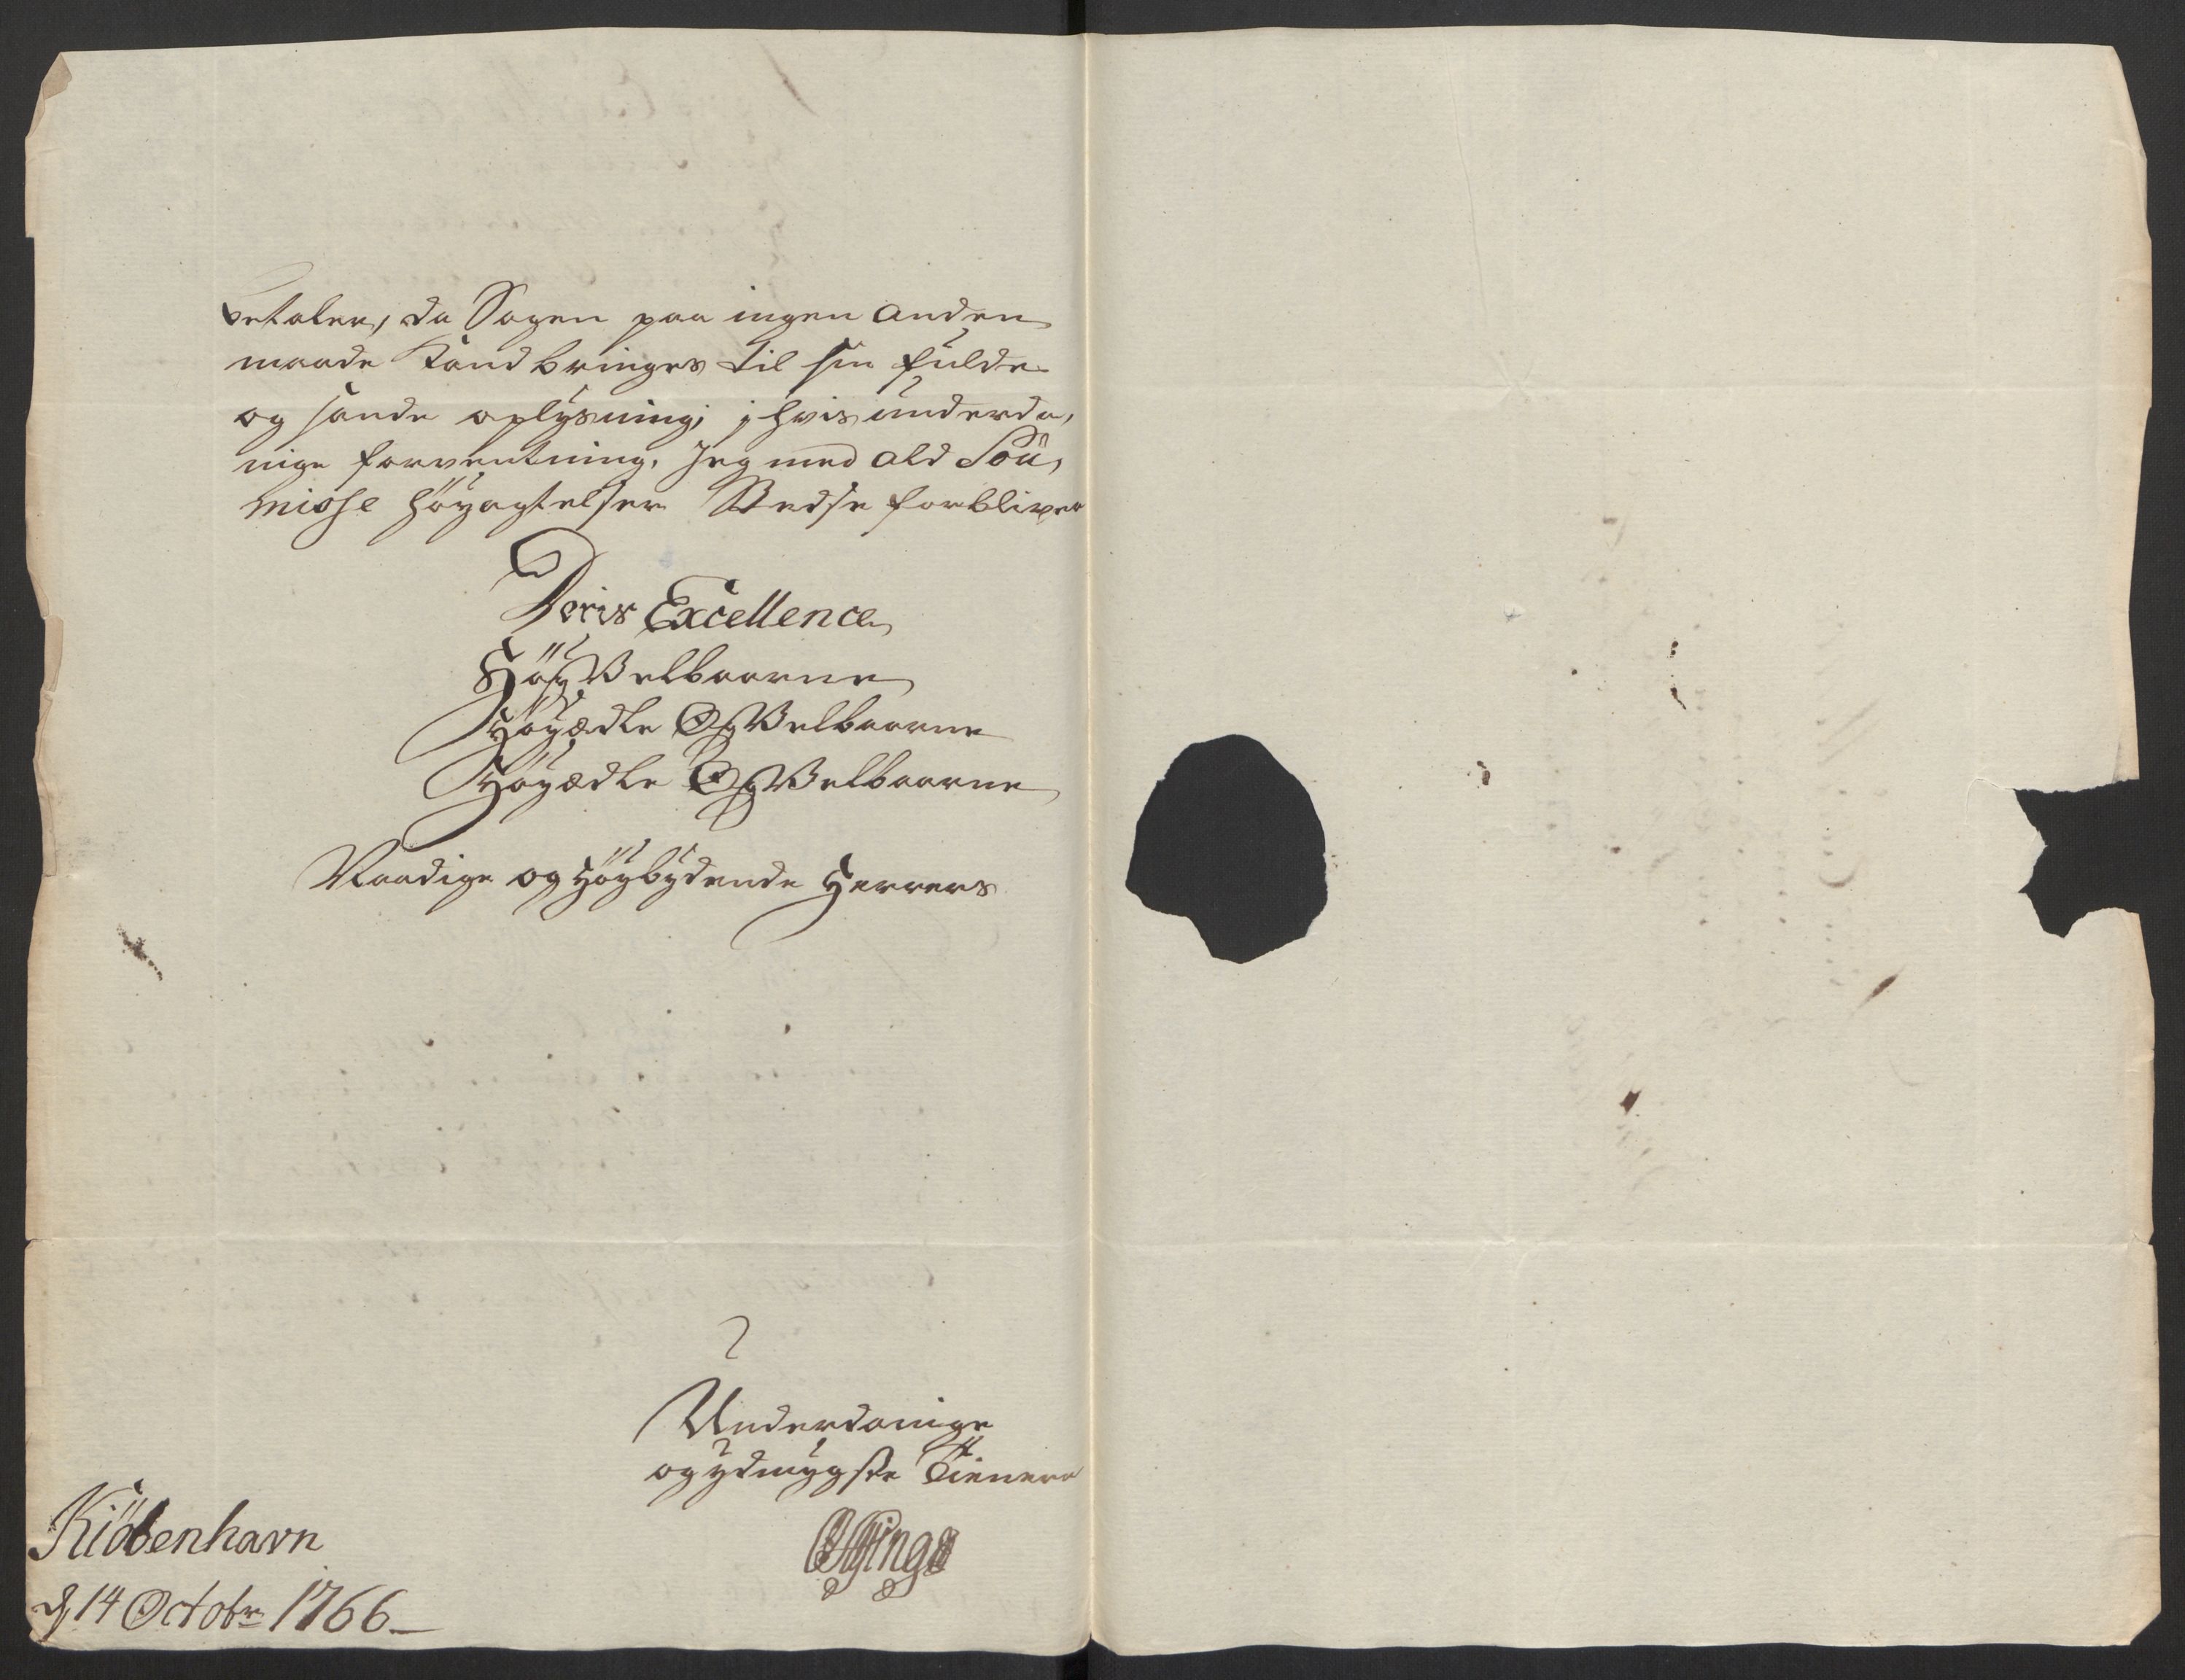 betaler, da Sagen paa ingen anden
maade kand bringes til sin fulde
og sande oplysning; j hvis underda,
nige forventning, Jeg med ald Sou,
misse höyagtelser Stedse forbliver
Deris Excellence
HöyVelbaarne
Höyædle OgVelbaarne
Höyædle OgVelbaarne
Naadige og Höybydende Herrers
Underdanige
og ydmygste Tienere
Kiöbenhavn
d 14 Octobr 1766